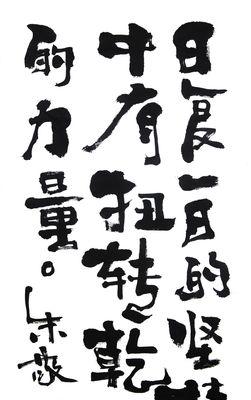 日复一日的坚
中有扭转乾
的力量。朱敬